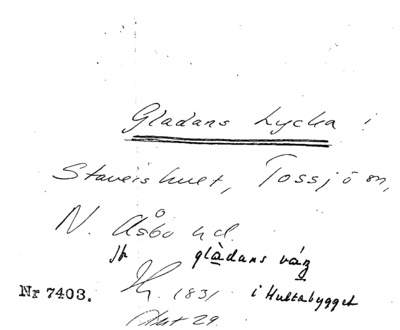 Gladans Lycka i
Stavershult, Tossjö sn,
N. Åsbo hd.
jfr glàdans väg
Nr 7403. 1831 i Hultabygget
Akt 29.